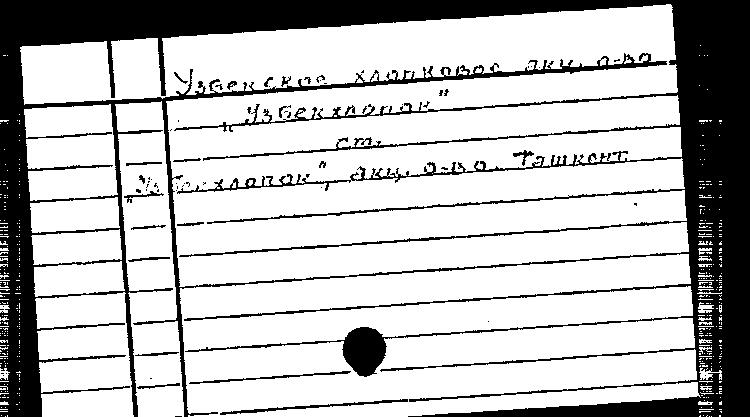 Узбекское хлопковое акц. о-во
„Узбекхлопок"
ст.
„Узбекхлопок", акц. о-во. Ташкент